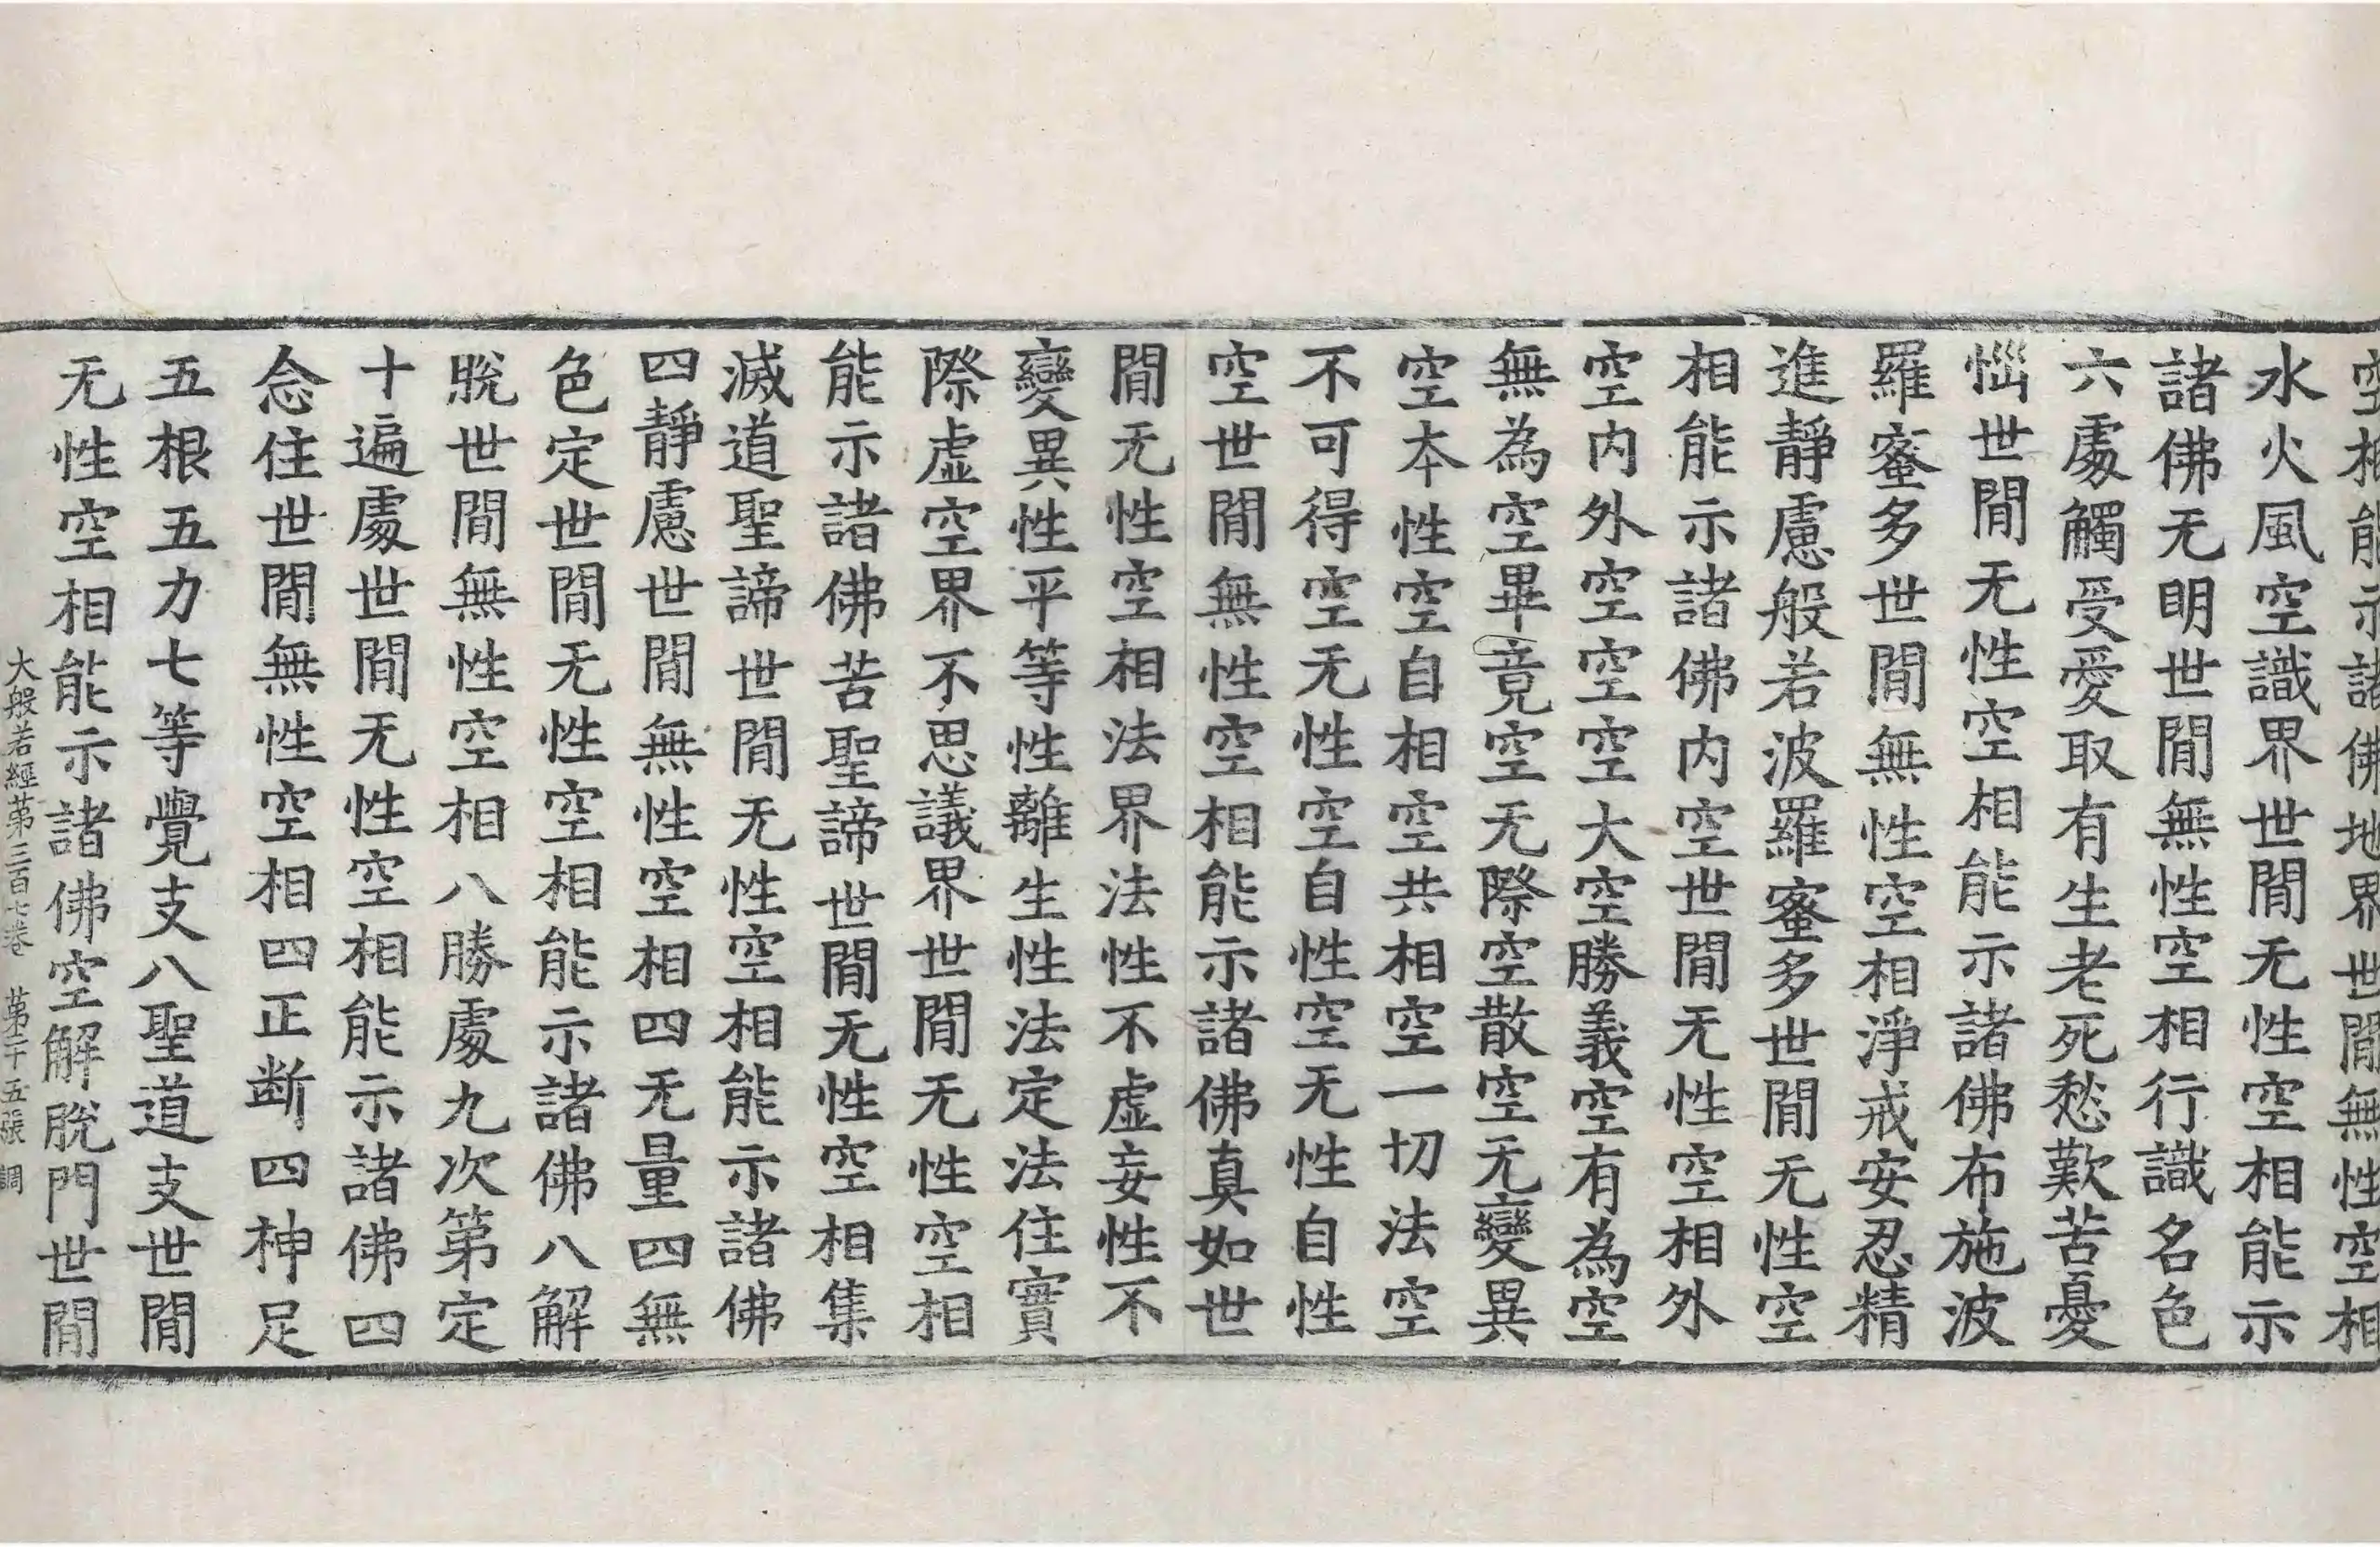 空相能示諸佛地界世間無性空相
水火風空識界世間无性空相能示
諸佛无明世間無性空相行識名色
六處觸受愛取有生老死愁歎苦憂
惱世間无性空相能示諸佛布施波
羅蜜多世間無性空相淨戒安忍精
進靜慮般若波羅蜜多世間无性空
相能示諸佛内空世間无性空相外
空内外空空空大空勝義空有為空
無為空畢竟空无際空散空无變異
空本性空自相空共相空一切法空
不可得空无性空自性空无性自性
空世間無性空相能示諸佛真如世
間无性空相法界法性不虛妄性不
變異性平等性離生性法定法住實
際虛空界不思議界世間无性空相
能示諸佛苦聖諦世間无性空相集
滅道聖諦世間无性空相能示諸佛
四靜慮世間無性空相四无量四無
色定世間无性空相能示諸佛八解
脫世間無性空相八勝處九次第定
十遍處世間无性空相能示諸佛四
念住世間無性空相四正断四神足
五根五力七等覺支八聖道支世間
无性空相能示諸佛空解脫門世間
大般若經第三百七卷 第十五張 調